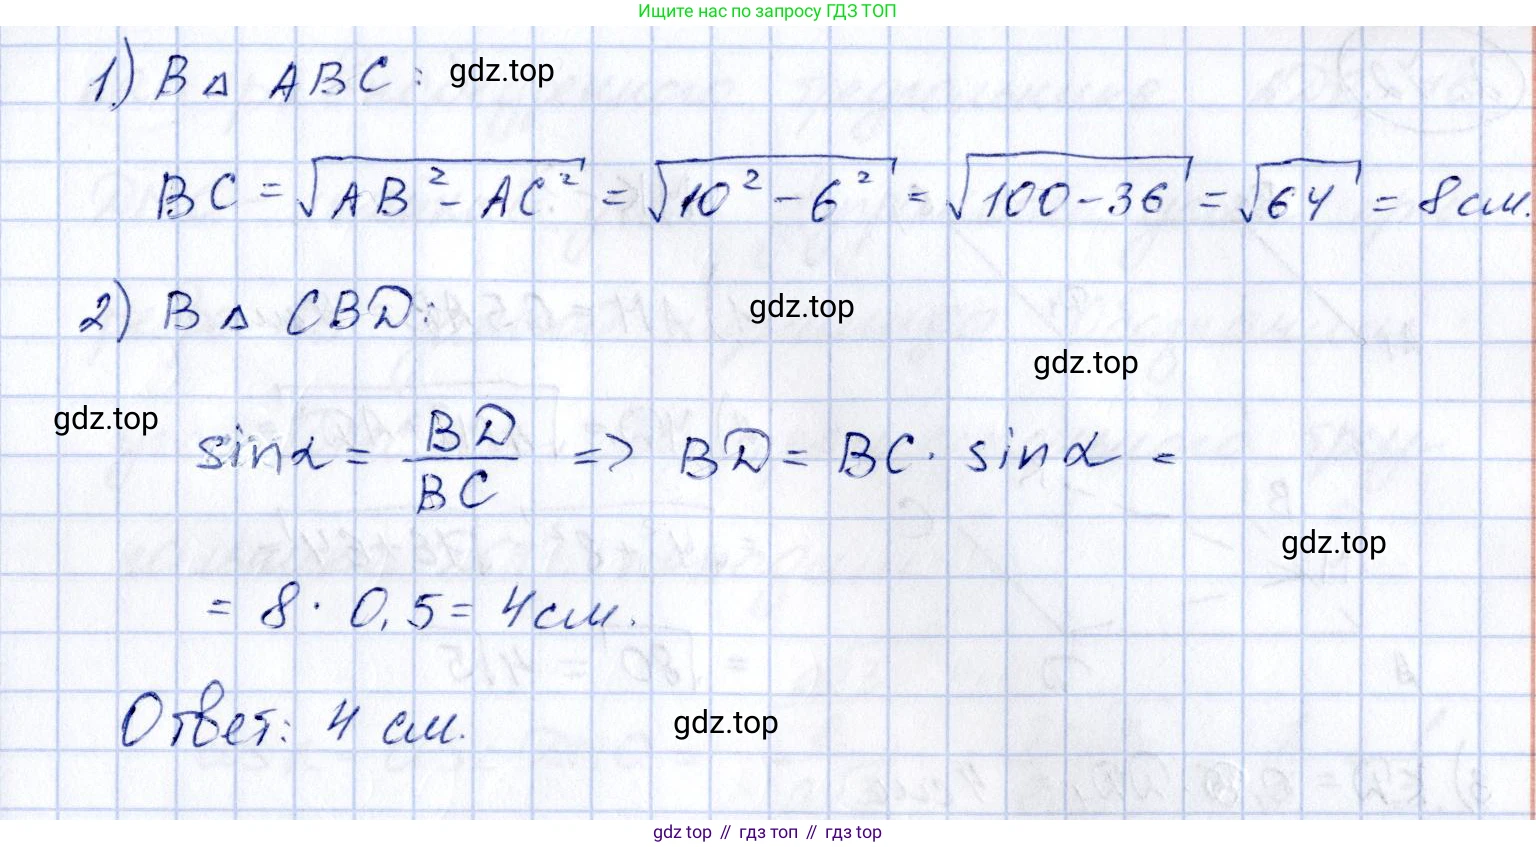 Ищите нас по запросу ГДЗ ТОП
1.) В △ ABC: gdz.top
BC = √AB² - AC² = √10² - 6² = √100 - 36 = √64 = 8 см.
2) В △ CBD: gdz.top
gdz.top
gdz.top
sinα = BD/BC => BD = BC · sinα =
gdz.top
= 8 · 0,5 = 4 см.
Ответ: 4 см. gdz.top
gdz top // гдз топ // гдз top